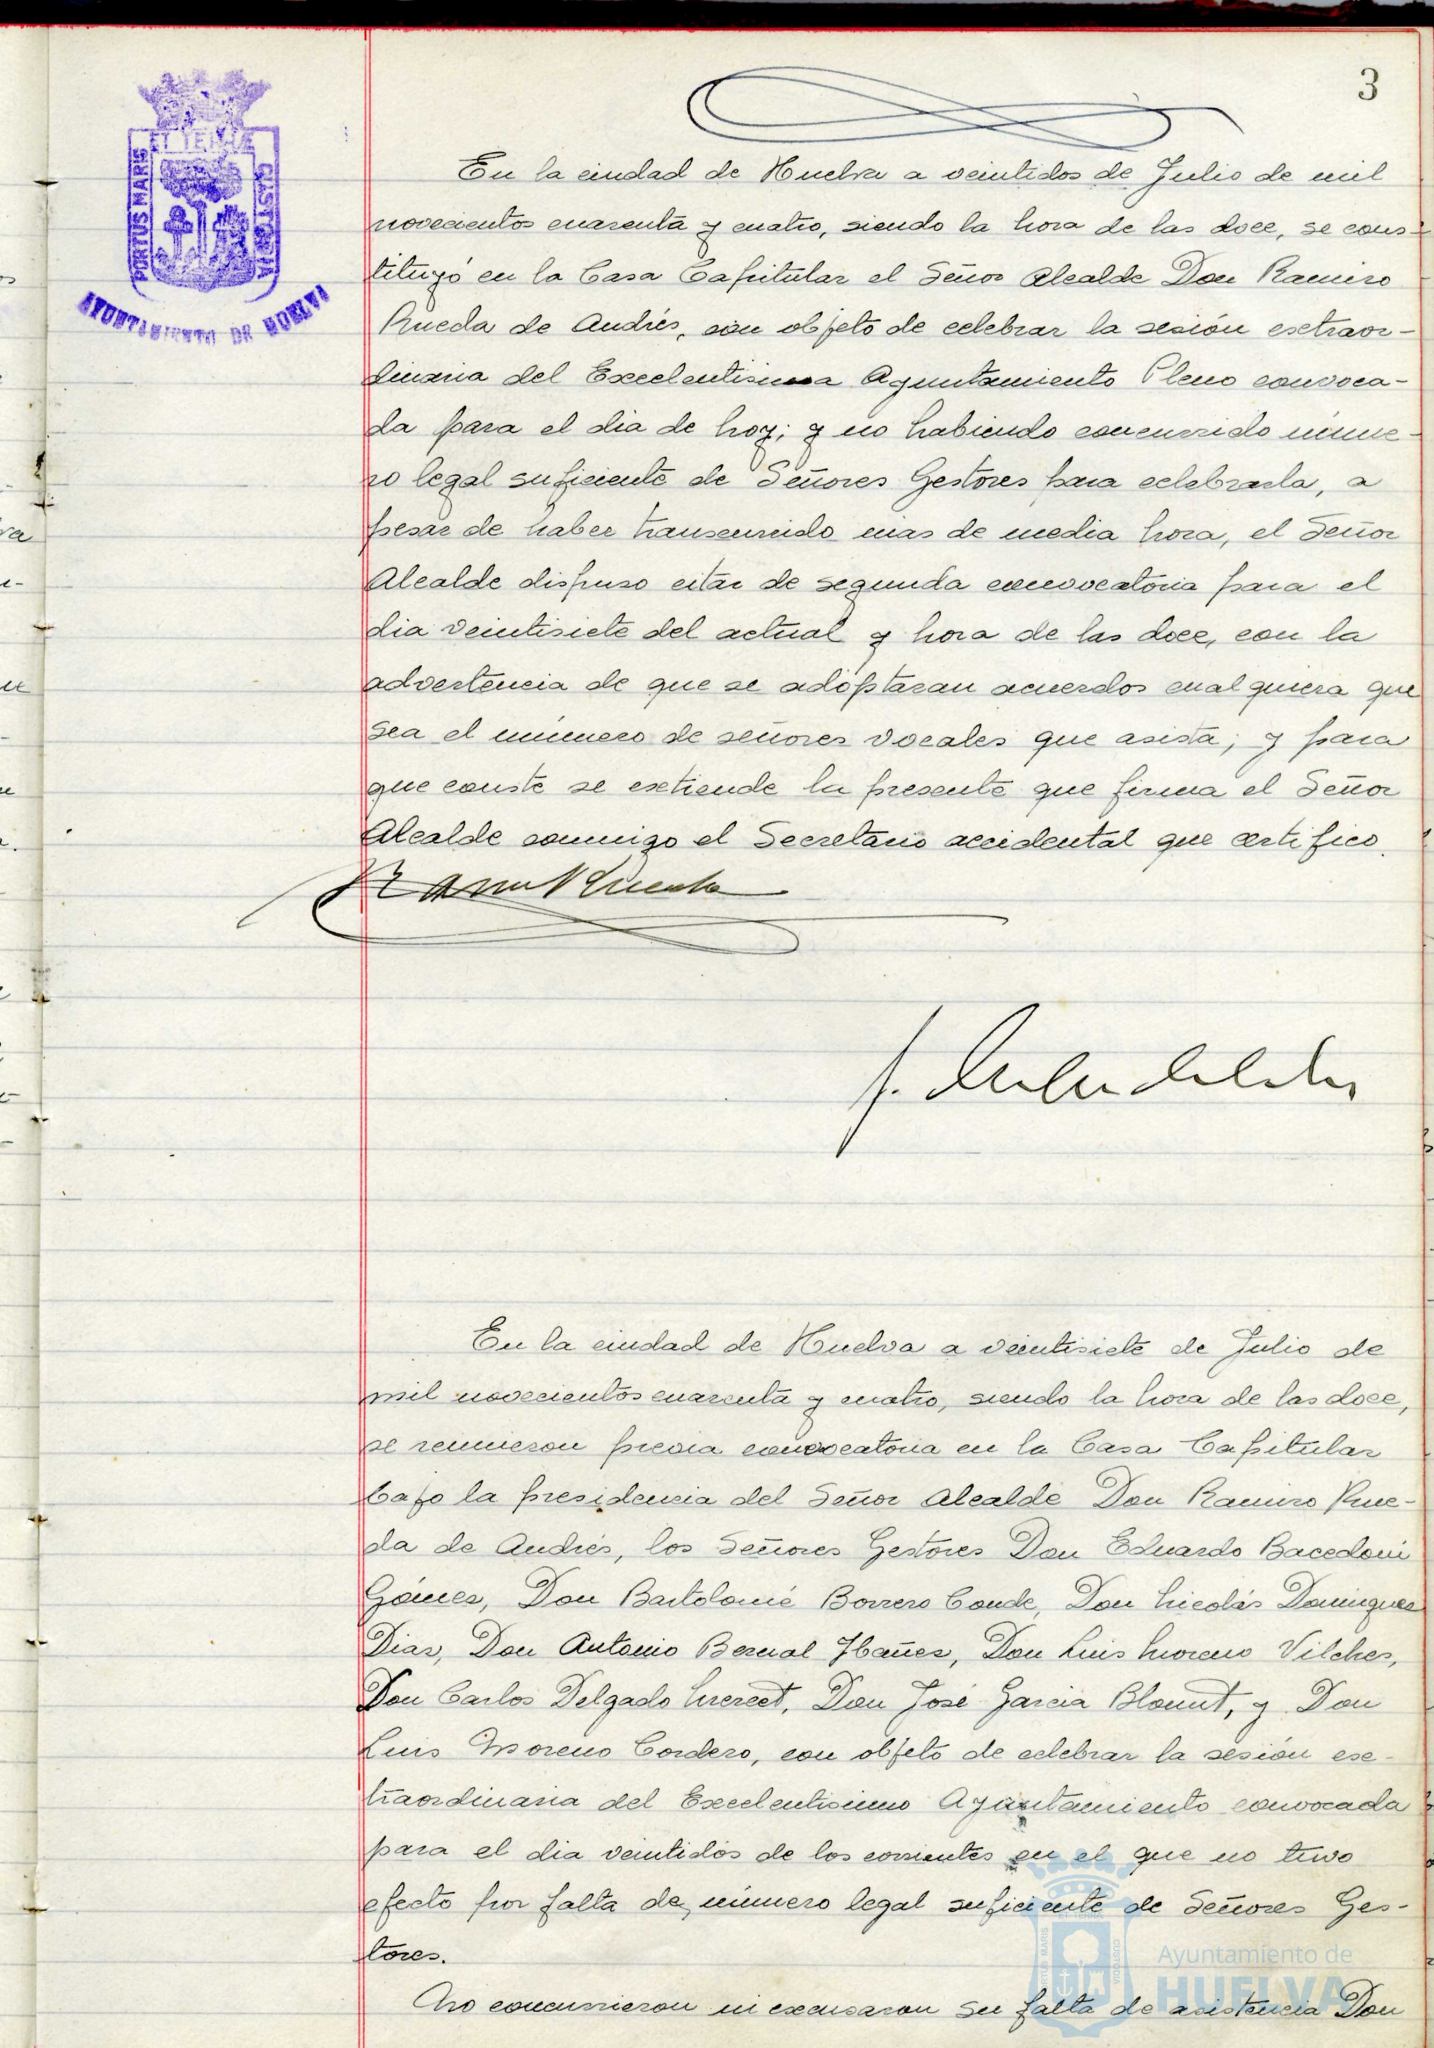 3
PORTUS MARIS
ET TERRÆ
CUSTODIA
AYUNTAMIENTO DE HUELVA
En la ciudad de Huelva a veintidos de Julio de mil
novecientos cuarenta y cuatro, siendo la hora de las doce, se cons-
tituyó en la Casa Capitular el Señor Alcalde Don Ramiro
Rueda de Andrés, con objeto de celebrar la sesión extraor-
dinaria del Excelentisima Ayuntamiento Pleno convoca-
da para el dia de hoy; y no habiendo concurrido núme-
ro legal suficiente de Señores Gestores para celebrarla, a
pesar de haber transcurrido mas de media hora, el Señor
Alcalde dispuso citar de segunda convocatoria para el
dia veintisiete del actual y hora de las doce, con la
advertencia de que se adoptaran acuerdos cualquiera que
sea el número de señores vocales que asista; y para
que conste se extiende la presente que firma el Señor
Alcalde conmigo el Secretario accidental que certifico.
Ramiro Rueda
En la ciudad de Huelva a veintisiete de Julio de
mil novecientos cuarenta y cuatro, siendo la hora de las doce,
se reunieron previa convocatoria en la Casa Capitular
bajo la presidencia del Señor Alcalde Don Ramiro Rue-
da de Andrés, los Señores Gestores Don Eduardo Bacedoni
Gómez, Don Bartolomé Borrero Conde, Don Nicolás Dominguez
Diaz, Don Antonio Bernal Ibañez, Don Luis Moreno Vilches,
Don Carlos Delgado Mercet, Don José Garcia Blount, y Don
Luis Moreno Cordero, con objeto de celebrar la sesión ex-
traordinaria del Excelentisimo Ayuntamiento convocada
para el dia veintidos de los corrientes en el que no tuvo
efecto por falta de número legal suficiente de Señores Ges-
tores.
No concurrieron ni excusaron su falta de asistencia Don
Ayuntamiento de
HUELVA